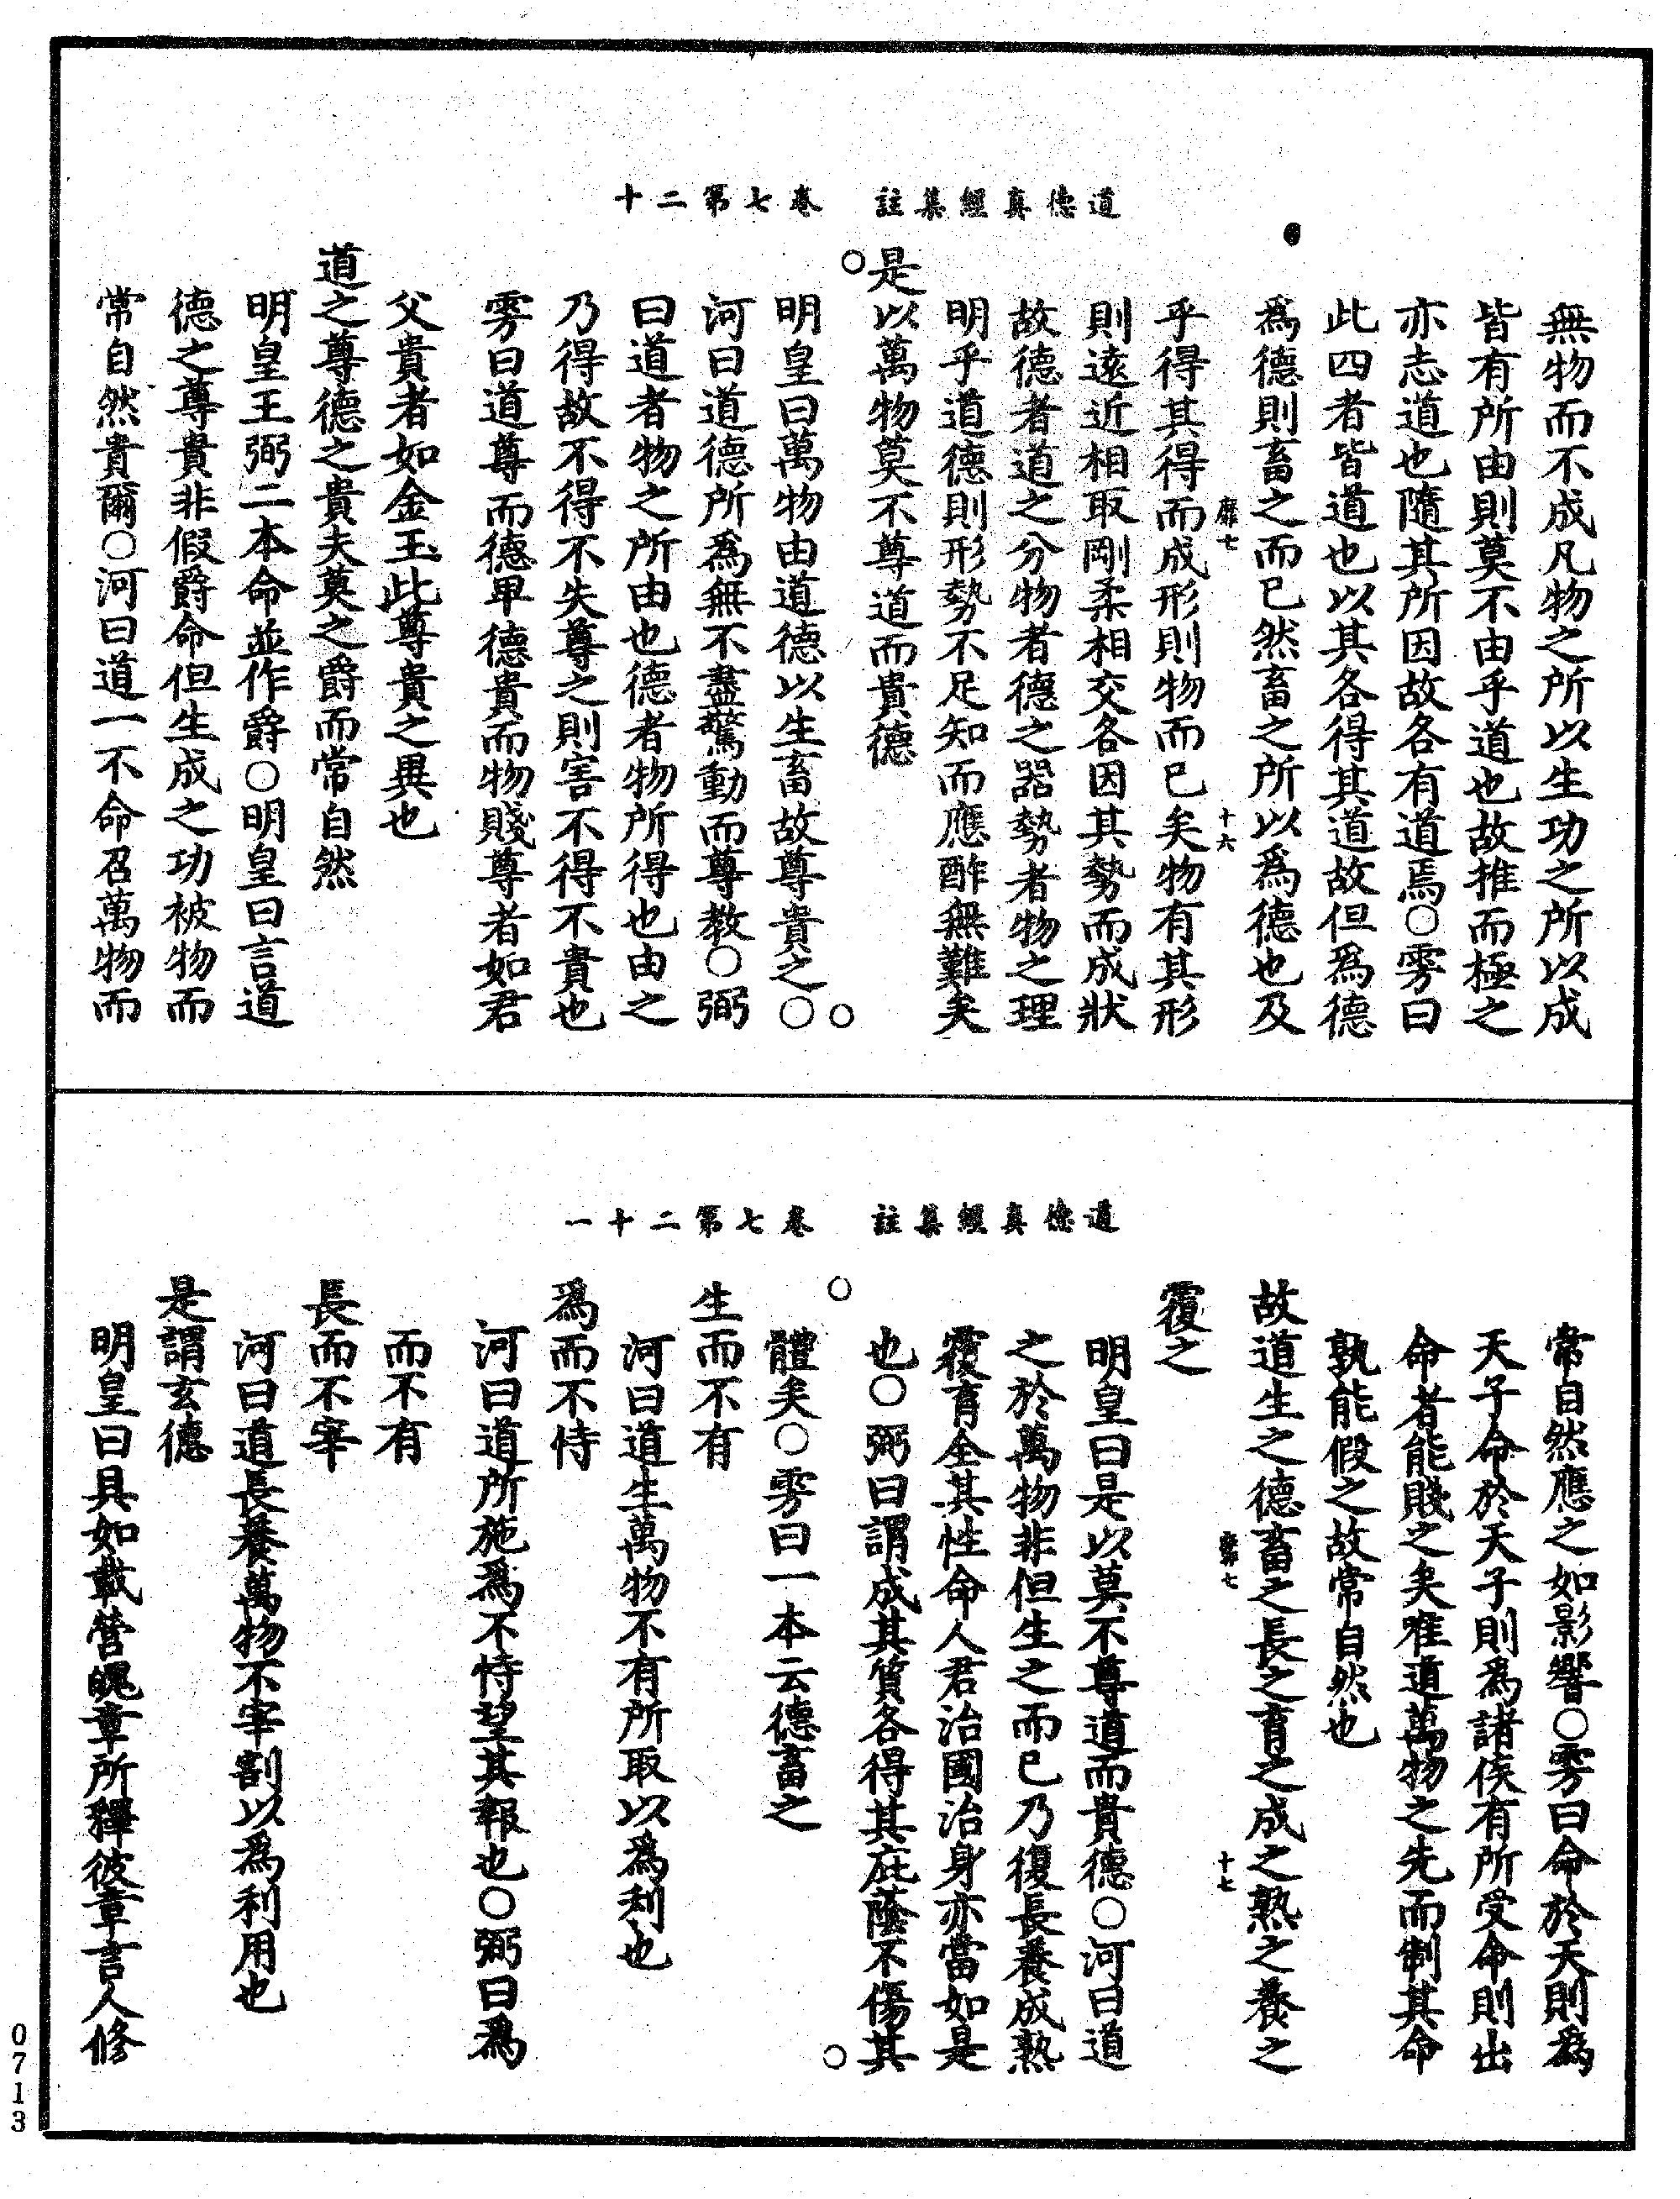 道德真經集註　卷七第二十
無物而不成凡物之所以生功之所以成
皆有所由則莫不由乎道也故推而極之
亦志道也隨其所因故各有道焉○雱曰
此四者皆道也以其各得其道故但爲德
爲德則畜之而已然畜之所以爲德也及
靡七　十六
乎得其得而成形則物而已矣物有其形
則遠近相取剛柔相交各因其勢而成狀
故德者道之分物者德之器勢者物之理
明乎道德則形勢不足知而應酢無難矣
是以萬物莫不尊道而貴德
明皇曰萬物由道德以生畜故尊貴之○
河曰道德所爲無不盡驚動而尊教○弼
曰道者物之所由也德者物所得也由之
乃得故不得不失尊之則害不得不貴也
雱曰道尊而德卑德貴而物賤尊者如君
父貴者如金玉此尊貴之異也
道之尊德之貴夫莫之爵而常自然
明皇王弼二本命並作爵○明皇曰言道
德之尊貴非假爵命但生成之功被物而
常自然貴爾○河曰道一不命召萬物而
道德真經集註　卷七第二十一
常自然應之如影響○雱曰命於天則爲
天子命於天子則爲諸侯有所受命則出
命者能賤之矣唯道萬物之先而制其命
孰能假之故常自然也
故道生之德畜之長之育之成之熟之養之
靡七　十七
覆之
明皇曰是以莫不尊道而貴德○河曰道
之於萬物非但生之而已乃復長養成熟
覆育全其性命人君治國治身亦當如是
也○弼曰謂成其質各得其庇蔭不傷其
體矣○雱曰一本云德畜之
生而不有
河曰道生萬物不有所取以爲利也
爲而不恃
河曰道所施爲不恃望其報也○弼曰爲
而不有
長而不宰
河曰道長養萬物不宰割以爲利用也
是謂玄德
明皇曰具如載營魄章所釋彼章言人修
0713